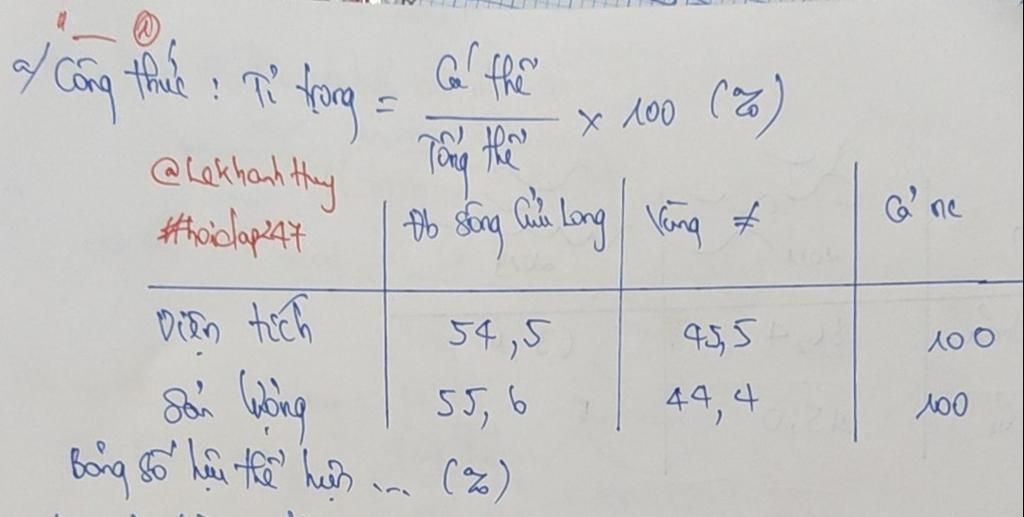 a/ Công thức : Tỉ trọng = Cá thể / Tổng thể × 100 (%)
@Lekhanhthuy
#hoidap247
Đb sông Cửu Long Vùng ≠ Cả nc
Diện tích 54,5 45,5 100
Sản lượng 55,6 44,4 100
Bảng số liệu thể hiện ... (%)